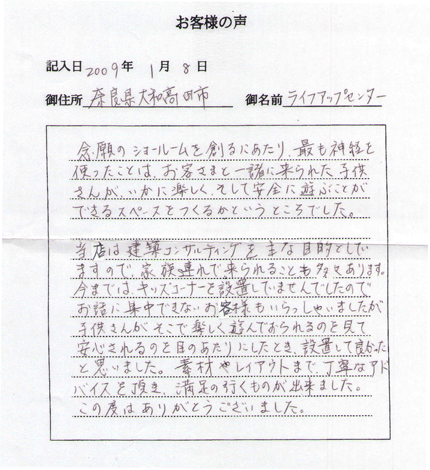 お客様の声
記入日 2009年 1月 8日
御住所 奈良県大和高田市 御名前 ライフアップセンター
念願のショールームを創るにあたり、最も神経を
使ったことは、お客さまと一緒に来られた子供
さんが、いかに楽しく、そして安全に遊ぶことが
できるスペースをつくるかというところでした。
当店は建築コンサルティングを主な目的としてい
ますので、家族連れで来られることも多々あります。
今までは、キッズコーナーを設置していませんでしたので
お話に集中できないお客様もいらっしゃいましたが
子供さんがそこで楽しく遊んでおられるのを見て
安心されるのを目のあたりにしたとき、設置して良かった
と思いました。素材やレイアウトまで丁寧なアド
バイスを頂き、満足の行くものが出来ました。
この度はありがとうございました。